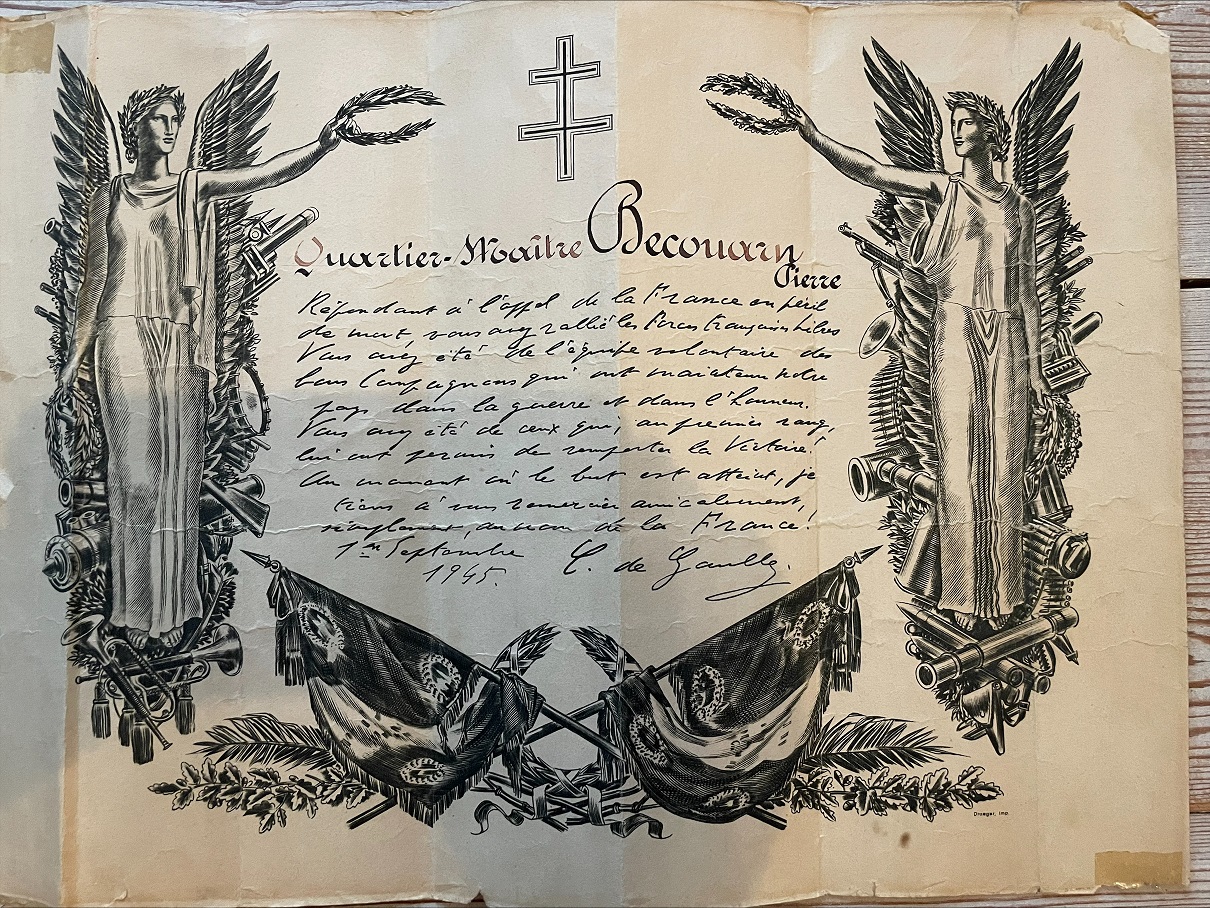 Quartier-Maître Becouarn
Pierre
Répondant à l'appel de la France en péril
de mort, vous avez rallié les Forces françaises libres
Vous avez été de l'équipe volontaire des
bons Compagnons qui ont maintenu notre
pays dans la guerre et dans l'honneur.
Vous avez été de ceux qui, au premier rang,
lui ont permis de remporter la Victoire!
Au moment où le but est atteint, je
tiens à vous remercier amicalement,
simplement, au nom de la France!
1er Septembre C. de Gaulle.
1945.
Draeger, imp.